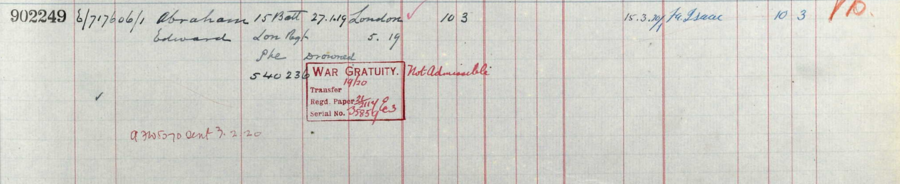 902249 E/717606/1 Abraham 15 Batt 27.1.19 London ✓ 10 3 15.3.20 Fa. Isaac 10 3
Edward Lon Regt 5. 19
Pte Drowned
540236
WAR GRATUITY. Not Admissible
19/20
Transfer
Regd. Paper
Serial No.
sent 3.2.20